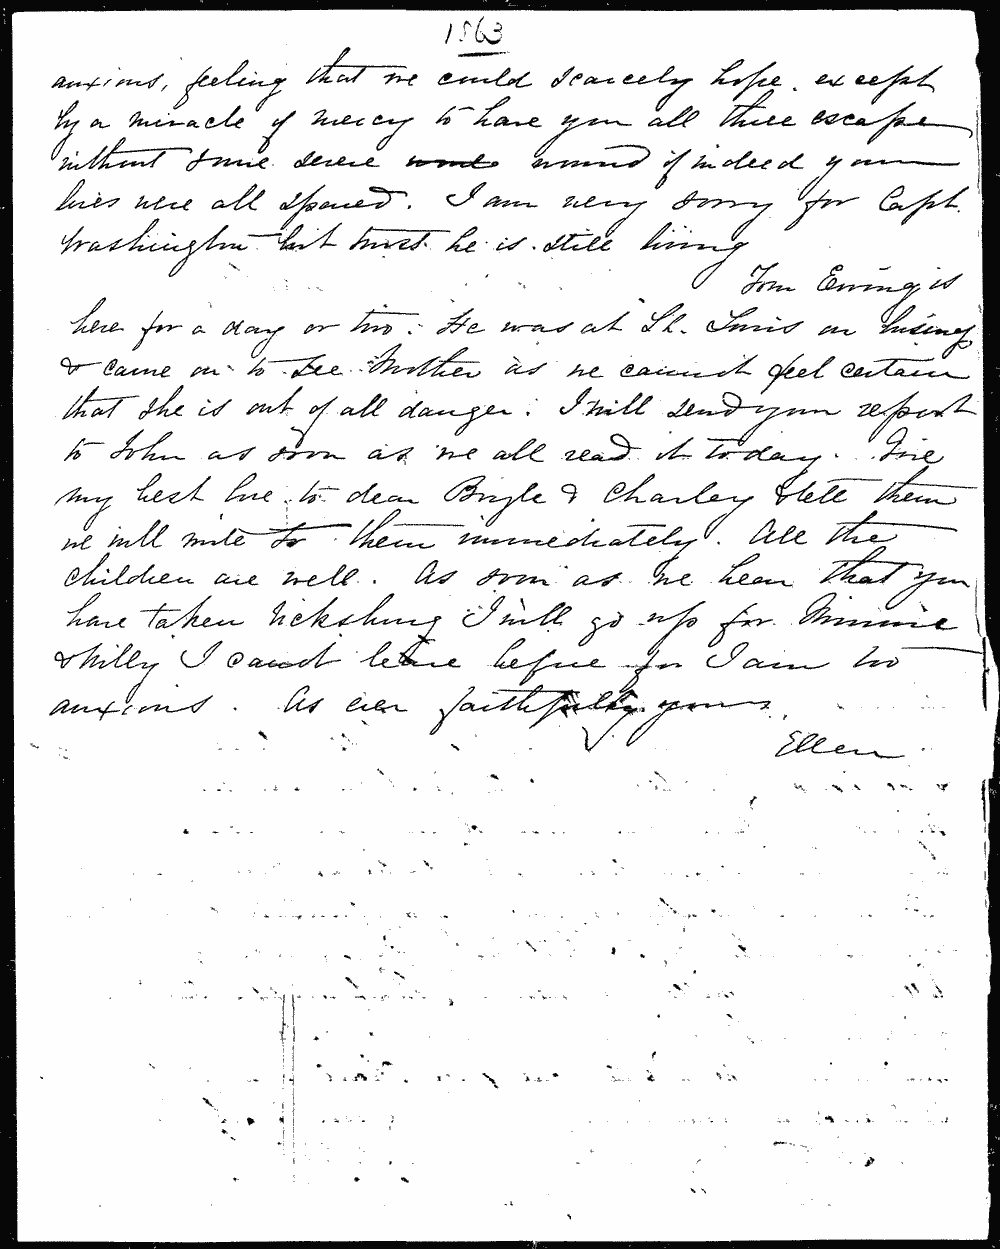 1863
anxious, feeling that we could scarcely hope, except
by a miracle of mercy to have you all three escape
without some severe wound if indeed your
lives were all spared. I am very sorry for Capt.
Washington but trust he is still living
Tom Ewing is
here for a day or two. He was at St. Louis on business
& came on to see Mother as we cannot feel certain
that she is out of all danger. I will send your report
to John as soon as we all read it today. Give
my best love to dear Boyle & Charley & tell them
we will write to them immediately. All the
children are well. As soon as we hear that you
have taken Vicksburg I will go up for Minnie
& Willy I cannot leave before for I am too
anxious. As ever faithfully yours,
Ellen